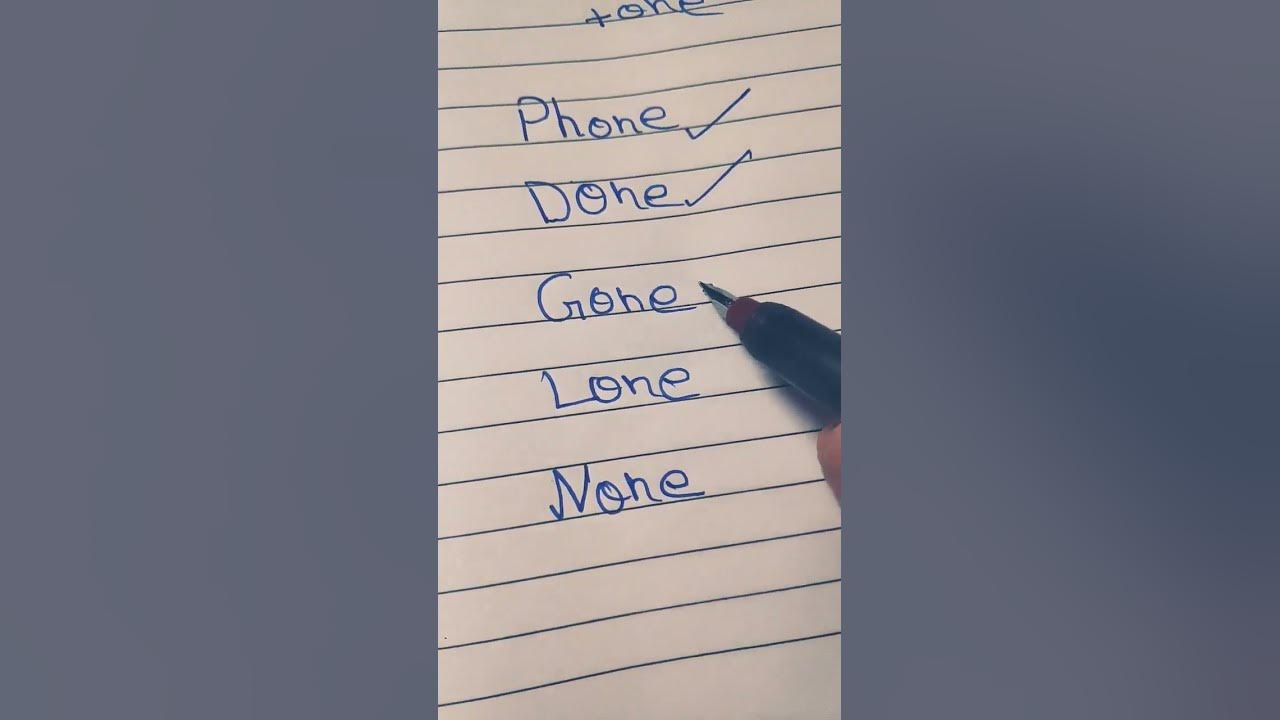 +one
Phone ✓
Done ✓
Gone
Lone
None